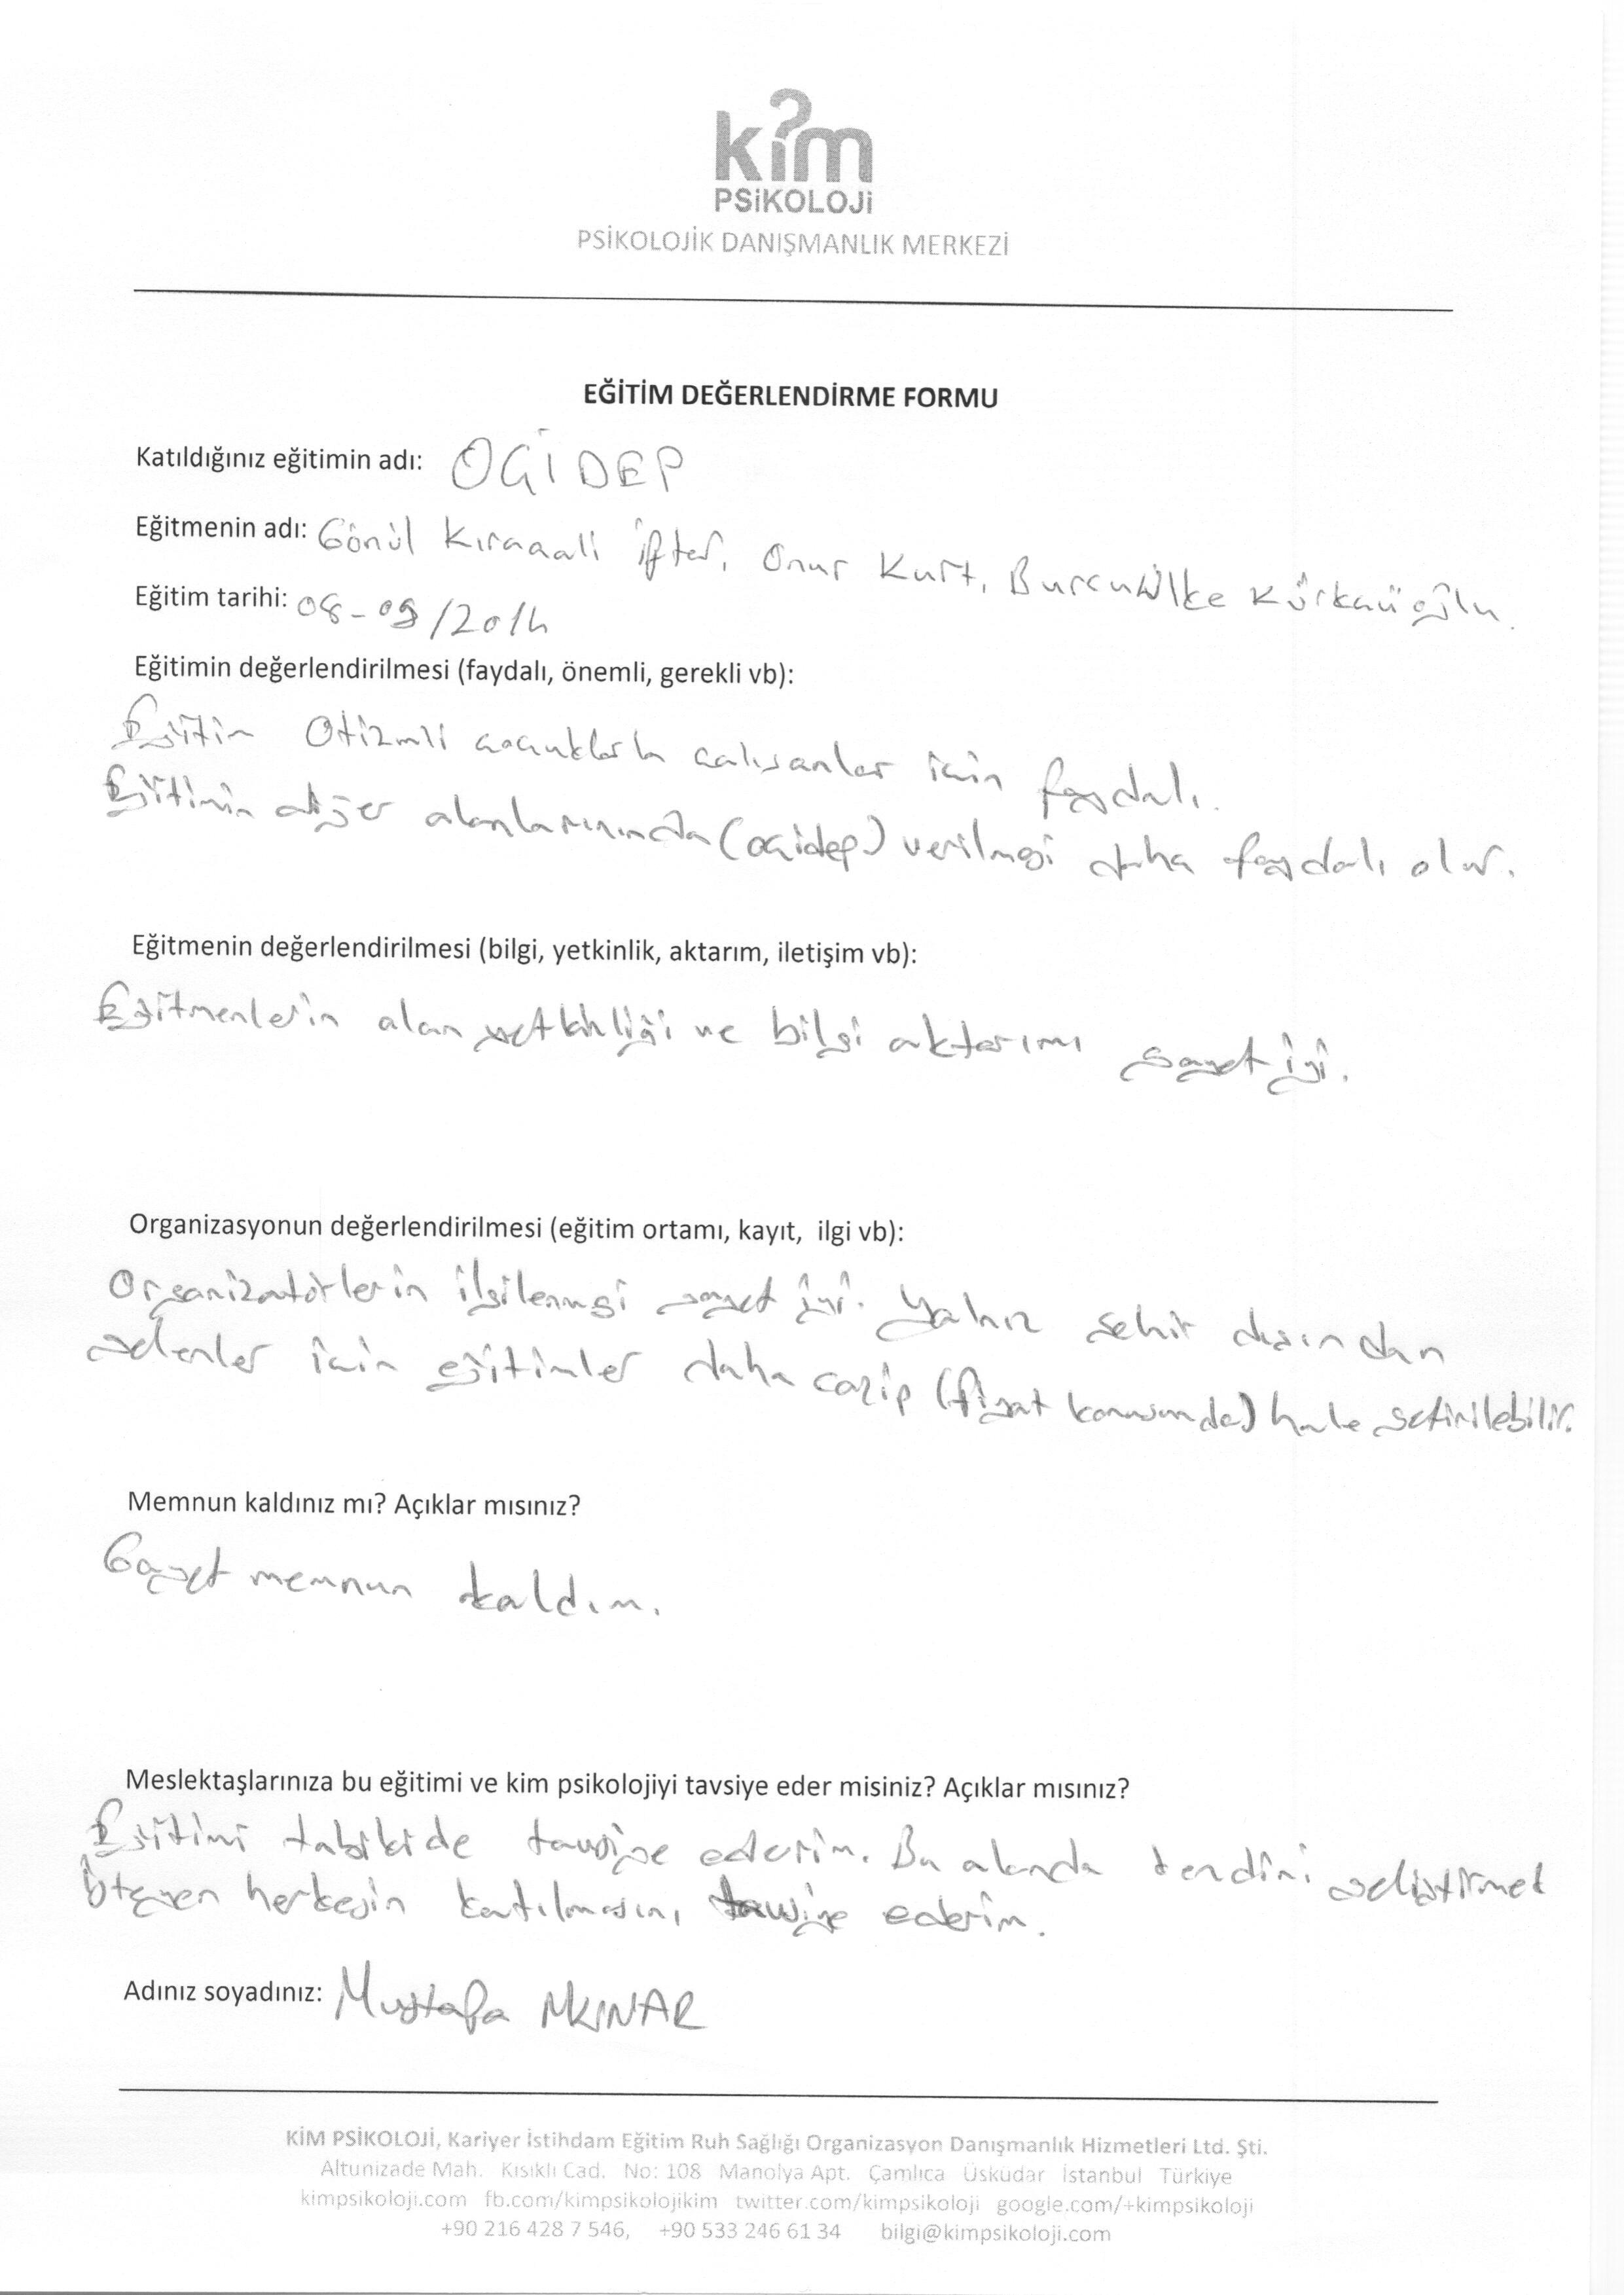 kim
PSiKOLOJi
PSİKOLOJİK DANIŞMANLIK MERKEZİ
EĞİTİM DEĞERLENDİRME FORMU
Katıldığınız eğitimin adı: OGİDEP
Eğitmenin adı: Gönül Kırcaali İftar, Onur Kurt, Burcu Ülke Kürkçüoğlu.
Eğitim tarihi: 08-09/2014
Eğitimin değerlendirilmesi (faydalı, önemli, gerekli vb):
Eğitim Otizmli çocuklarla çalışanlar için faydalı.
Eğitimin diğer alanlarınında (ogidep) verilmesi daha faydalı olur.
Eğitmenin değerlendirilmesi (bilgi, yetkinlik, aktarım, iletişim vb):
Eğitmenlerin alan yetkinliği ve bilgi aktarımı gayet iyi.
Organizasyonun değerlendirilmesi (eğitim ortamı, kayıt, ilgi vb):
Organizatörlerin ilgilenmesi gayet iyi. Yalnız şehir dışından
gelenler için eğitimler daha cazip (fiyat konusunda) hale getirilebilir.
Memnun kaldınız mı? Açıklar mısınız?
Gayet memnun kaldım.
Meslektaşlarınıza bu eğitimi ve kim psikolojiyi tavsiye eder misiniz? Açıklar mısınız?
Eğitimi tabikide tavsiye ederim. Bu alanda kendini geliştirmek
isteyen herkesin katılmasını tavsiye ederim.
Adınız soyadınız: Mustafa AKINAR
KİM PSİKOLOJİ, Kariyer İstihdam Eğitim Ruh Sağlığı Organizasyon Danışmanlık Hizmetleri Ltd. Şti.
Altunizade Mah. Kısıklı Cad. No: 108 Manolya Apt. Çamlıca Üsküdar İstanbul Türkiye
kimpsikoloji.com fb.com/kimpsikolojikim twitter.com/kimpsikoloji google.com/+kimpsikoloji
+90 216 428 7 546, +90 533 246 61 34 bilgi@kimpsikoloji.com